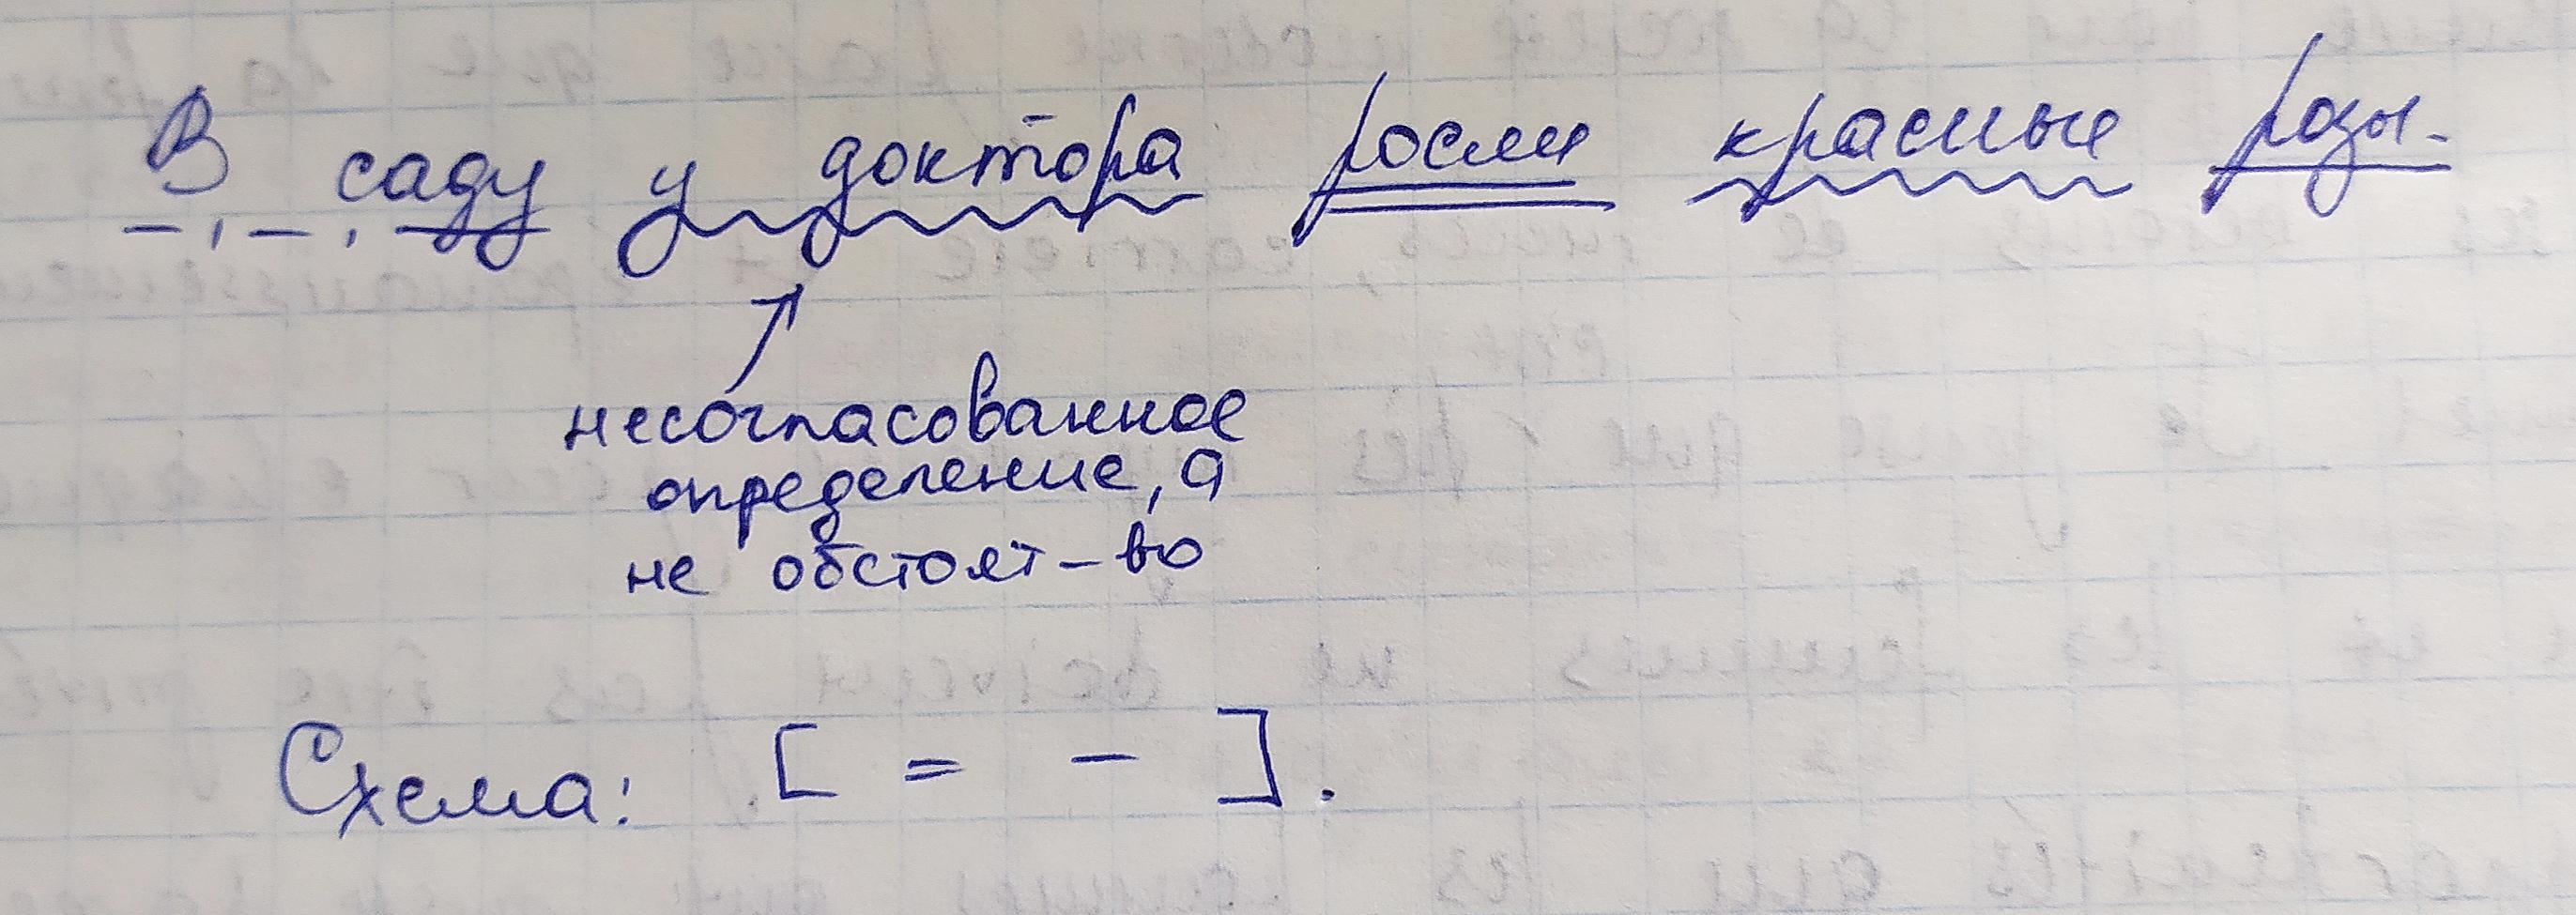 В саду у доктора росли красные розы.
несогласованное
определение, а
не обстоят-во
Схема: [ = - ].